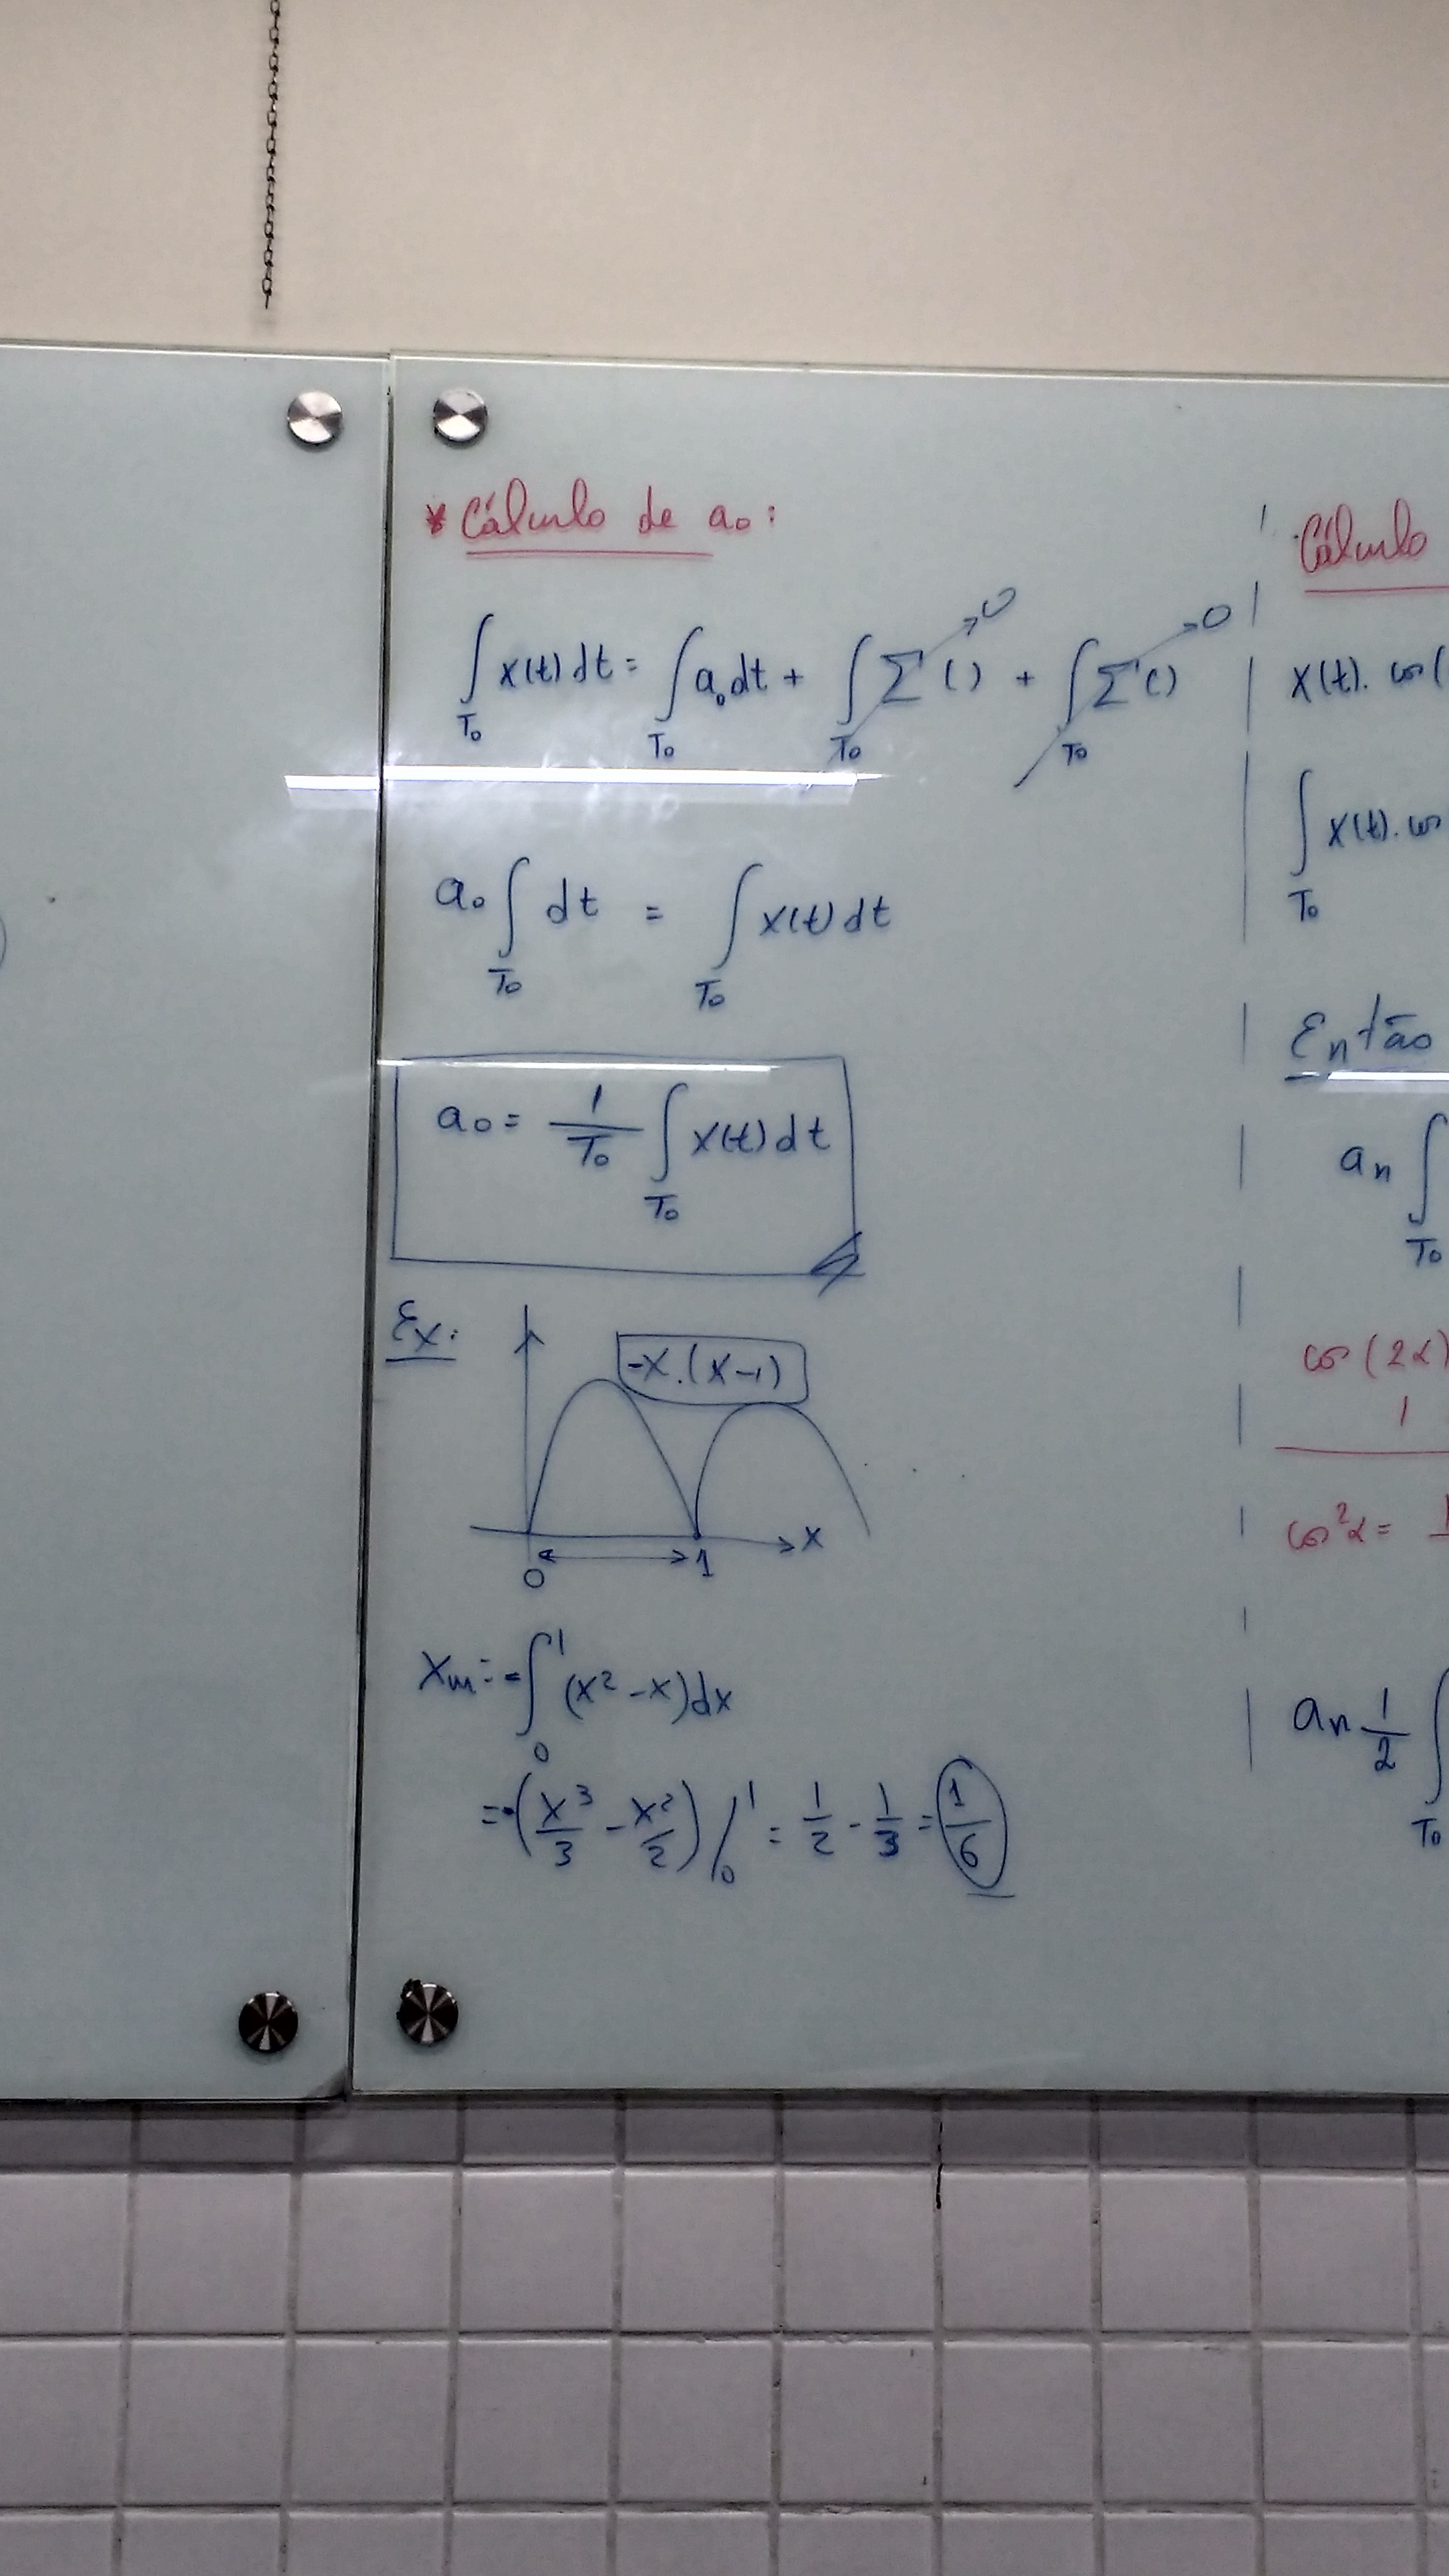 * Cálculo de a₀:
∫T₀ x(t)dt = ∫T₀ a₀dt + ∫T₀ Σ( ) → 0 + ∫T₀ Σ( ) → 0
a₀ ∫T₀ dt = ∫T₀ x(t)dt
a₀ = 1/T₀ ∫T₀ x(t)dt
Ex:
-x.(x-1)
x
0 1
Xm = -∫₀¹ (x² - x)dx
= -(x³/3 - x²/2)/₀¹ = 1/2 - 1/3 = 1/6
Cálculo
x(t). cos(
∫T₀ x(t). cos
Então
aₙ ∫T₀
cos(2α)
1
cos²α = 1
aₙ 1/2 ∫T₀